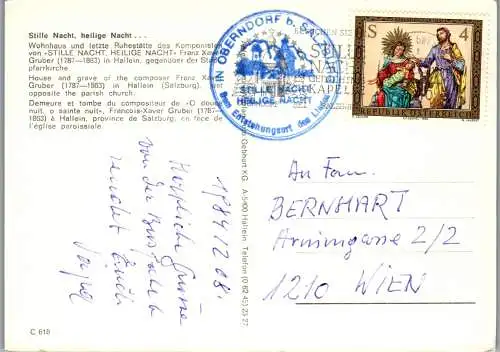 Stille Nacht, heilige Nacht . . .
Wohnhaus und letzte Ruhestätte des Komponisten
von «STILLE NACHT, HEILIGE NACHT» Franz Xaver
Gruber (1787—1863) in Hallein, gegenüber der Stadt-
pfarrkirche.
House and grave of the composer Franz Xaver
Gruber (1787—1863) in Hallein (Salzburg), just
opposite the parish church.
Demeure et tombe du compositeur de «O douce
nuit, o sainte nuit», Francois-Xavier Gruber (1787—
1863) à Hallein, province de Salzburg, en face de
l'église paroissiale
C 618
1984/12/08.
Herzliche Grüsse
von der Busfahrt
sendet Euch
Gebhart KG. A-5400 Hallein, Telefon (0 62 45) 23 27
IN OBERNDORF b. S
STILLE NACHT
HEILIGE NACHT
Vom Entstehungsort des Liedes
BESUCHEN SIE
STILLE
NACHT
KAPELLE
S 4
REPUBLIK ÖSTERREICH
An Fam.
BERNHART
Arminggasse 2/2
1210 WIEN